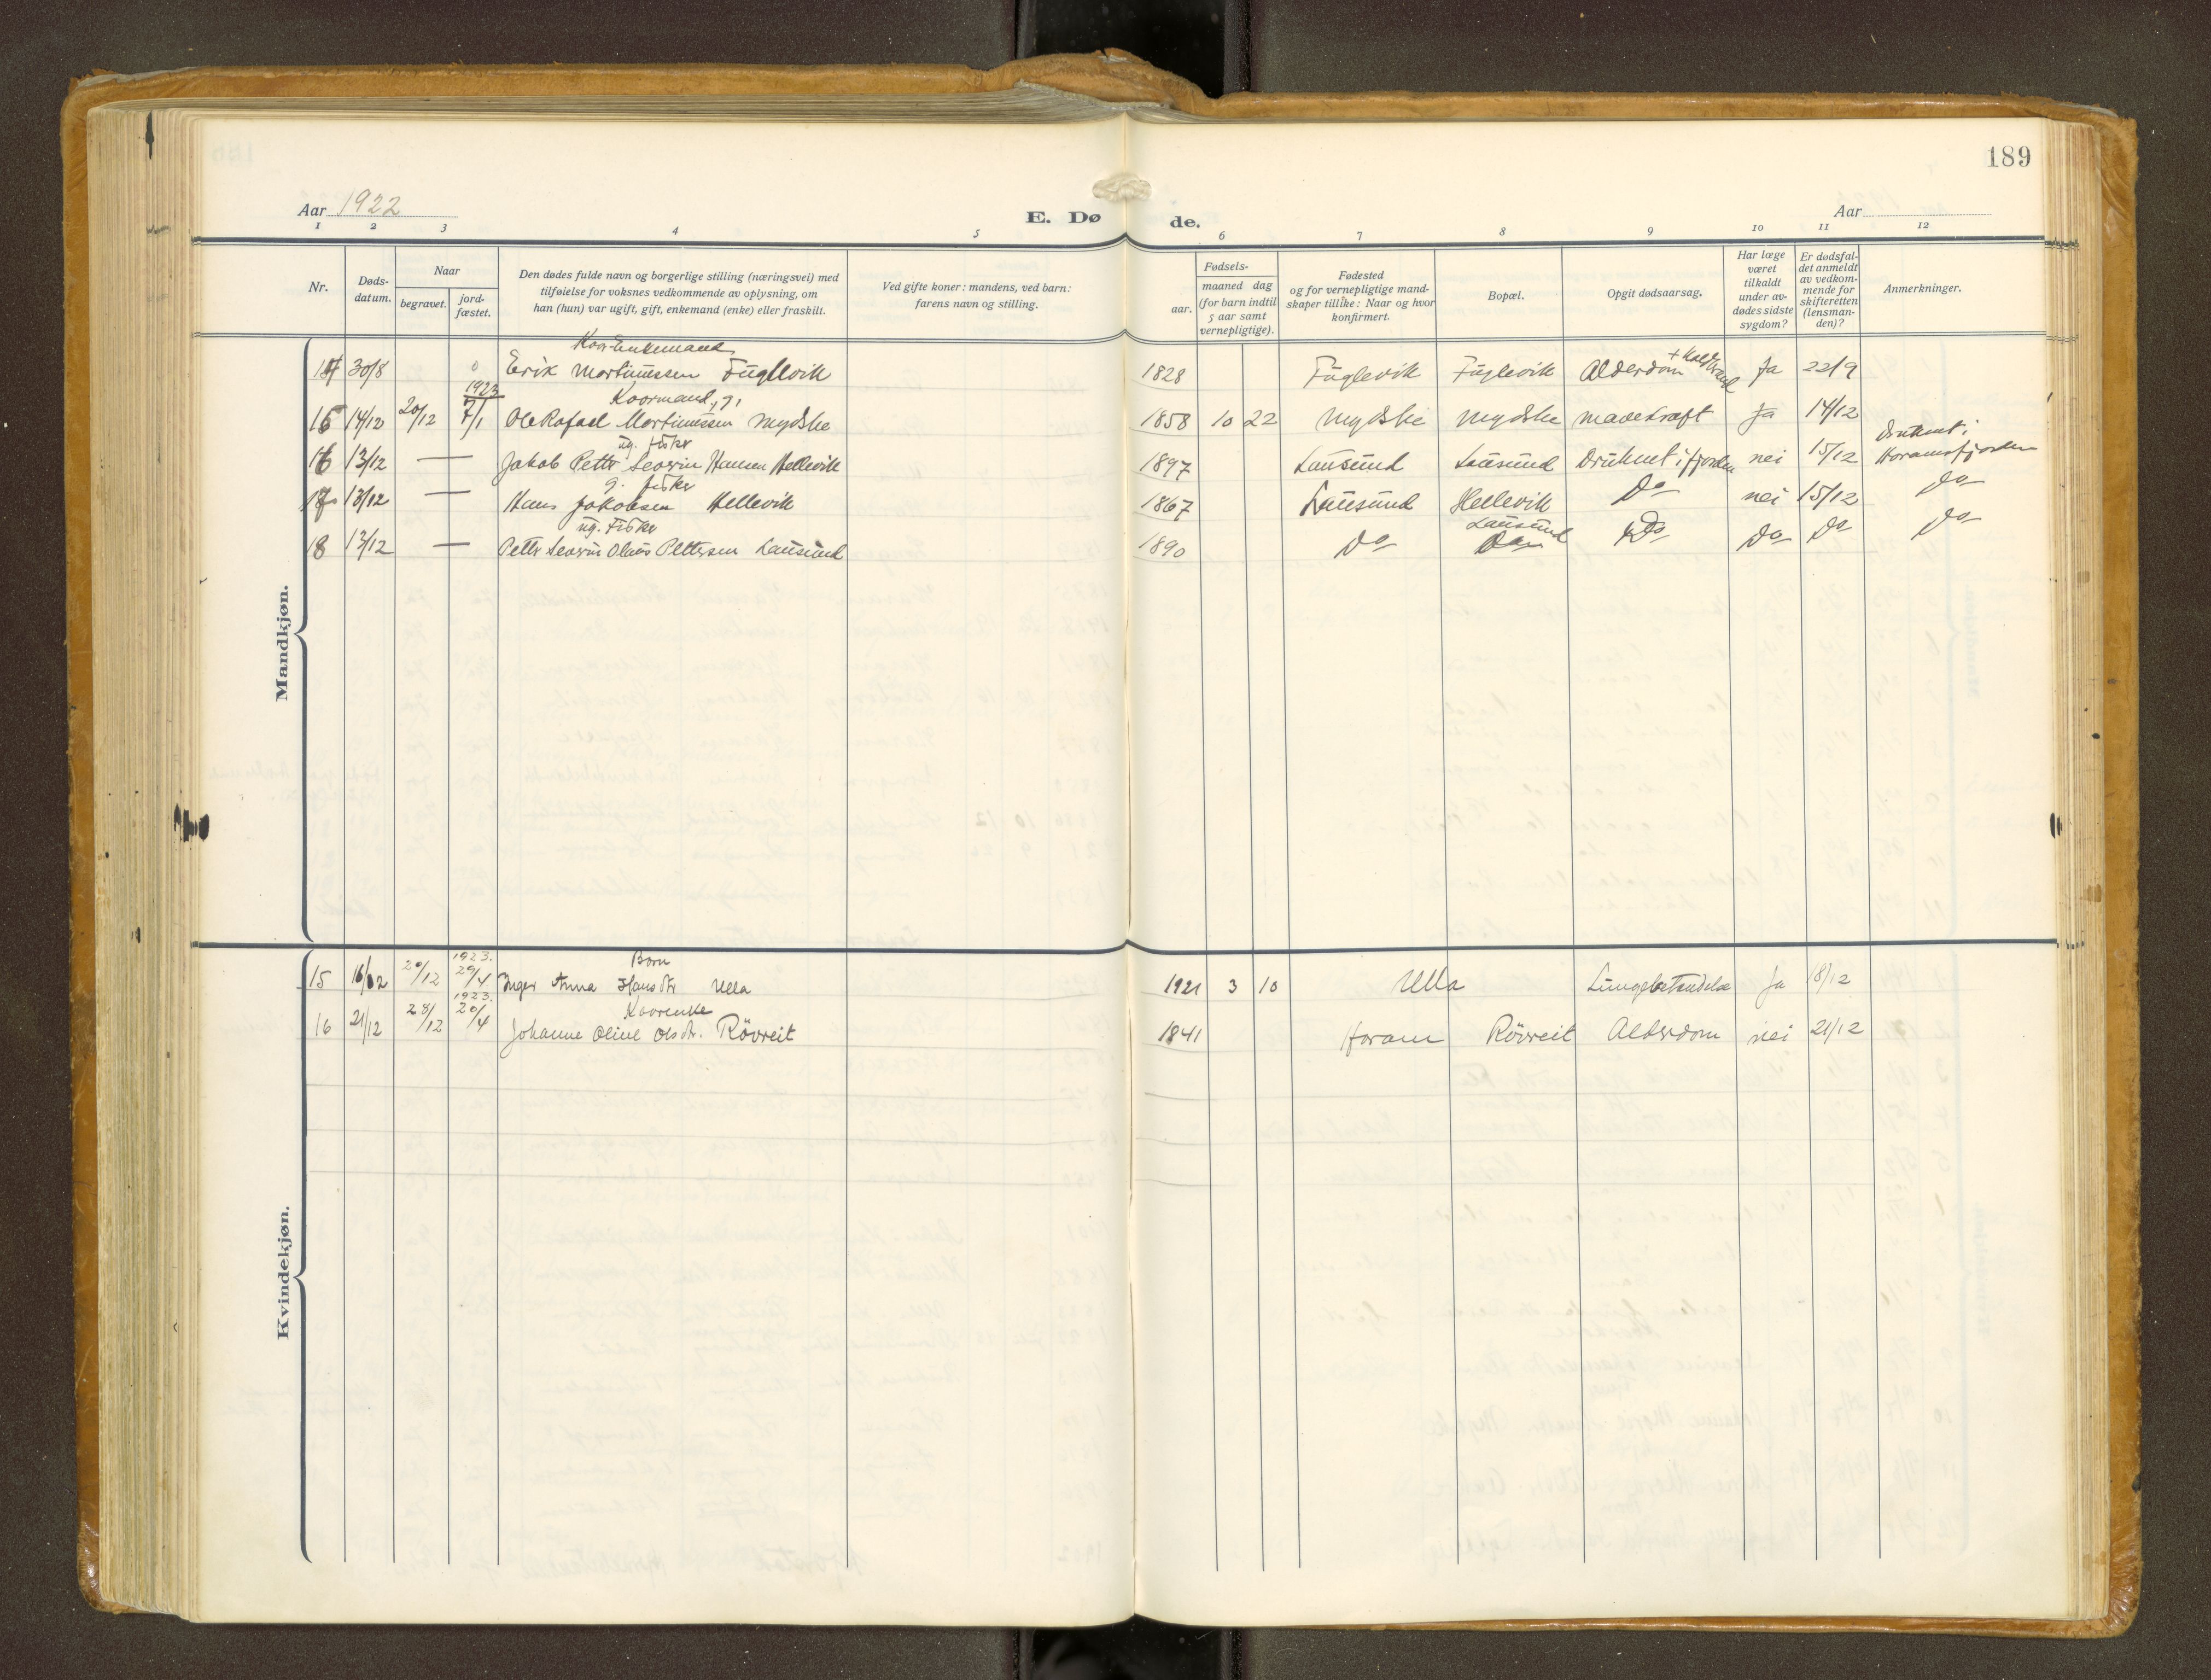 189
Aar 1922
E. Dø de.
Aar
1 2 3 4 5 6 7 8 9 10 11 12
Nr.
Døds-
datum.
Naar
begravet.
jord-
fæstet.
Den dødes fulde navn og borgerlige stilling (næringsvei) med
tilføielse for voksnes vedkommende av oplysning, om
han (hun) var ugift, gift, enkemand (enke) eller fraskilt.
Ved gifte koner: mandens, ved barn:
farens navn og stilling.
Fødsels-
aar.
maaned dag
(for barn indtil
5 aar samt
vernepligtige).
Fødested
og for vernepligtige mand-
skaper tillike: Naar og hvor
konfirmert.
Bopæl.
Opgit dødsaarsag.
Har læge
været
tilkaldt
under av-
dødes sidste
sygdom?
Er dødsfal-
det anmeldt
av vedkom-
mende for
skifteretten
(lensman-
den)?
Anmerkninger.
Mandkjøn.
Kaarenkemand
14 30/8 0 Erik Martinussen Fuglevik 1828 Fuglevik Fuglevik Alderdom + Koldbrand Ja 22/9
1923
Kaarmand, g.
15 14/12 20/12 7/1 Ole Rafael Martinussen Mydske 1858 10 22 Mydske Mydske mavekræft Ja 14/12
ug. fisker
16 13/12 — Jakob Petter Severin Hansen Hellevik 1897 Lausund Lausund Druknet i fjorden nei 15/12 Druknet i
Haramsfjorden
g. fisker
17 13/12 — Hans Jakobsen Hellevik 1867 Lausund Hellevik Do nei 15/12 Do
ug. Fisker
18 13/12 — Petter Severin Olaus Pettersen Lausund 1890 Do Lausund Do Do Do Do
Kvindekjøn.
1923. Barn
15 16/12 20/12 29/4 Inger Anna Hansdtr Ulla 1921 3 10 Ulla Lungebetændelse Ja 18/12
1923. Kaarenke
16 21/12 28/12 20/4 Johanne Oline Olsdtr. Rövreit 1841 Haram Rövreit Alderdom nei 21/12